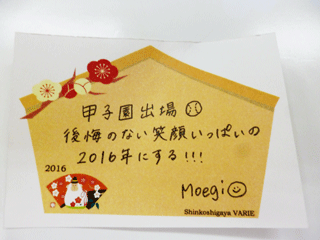 甲子園出場
後悔のない笑顔いっぱいの
2016年にする!!!
2016
Moegi
Shinkoshigaya VARIE